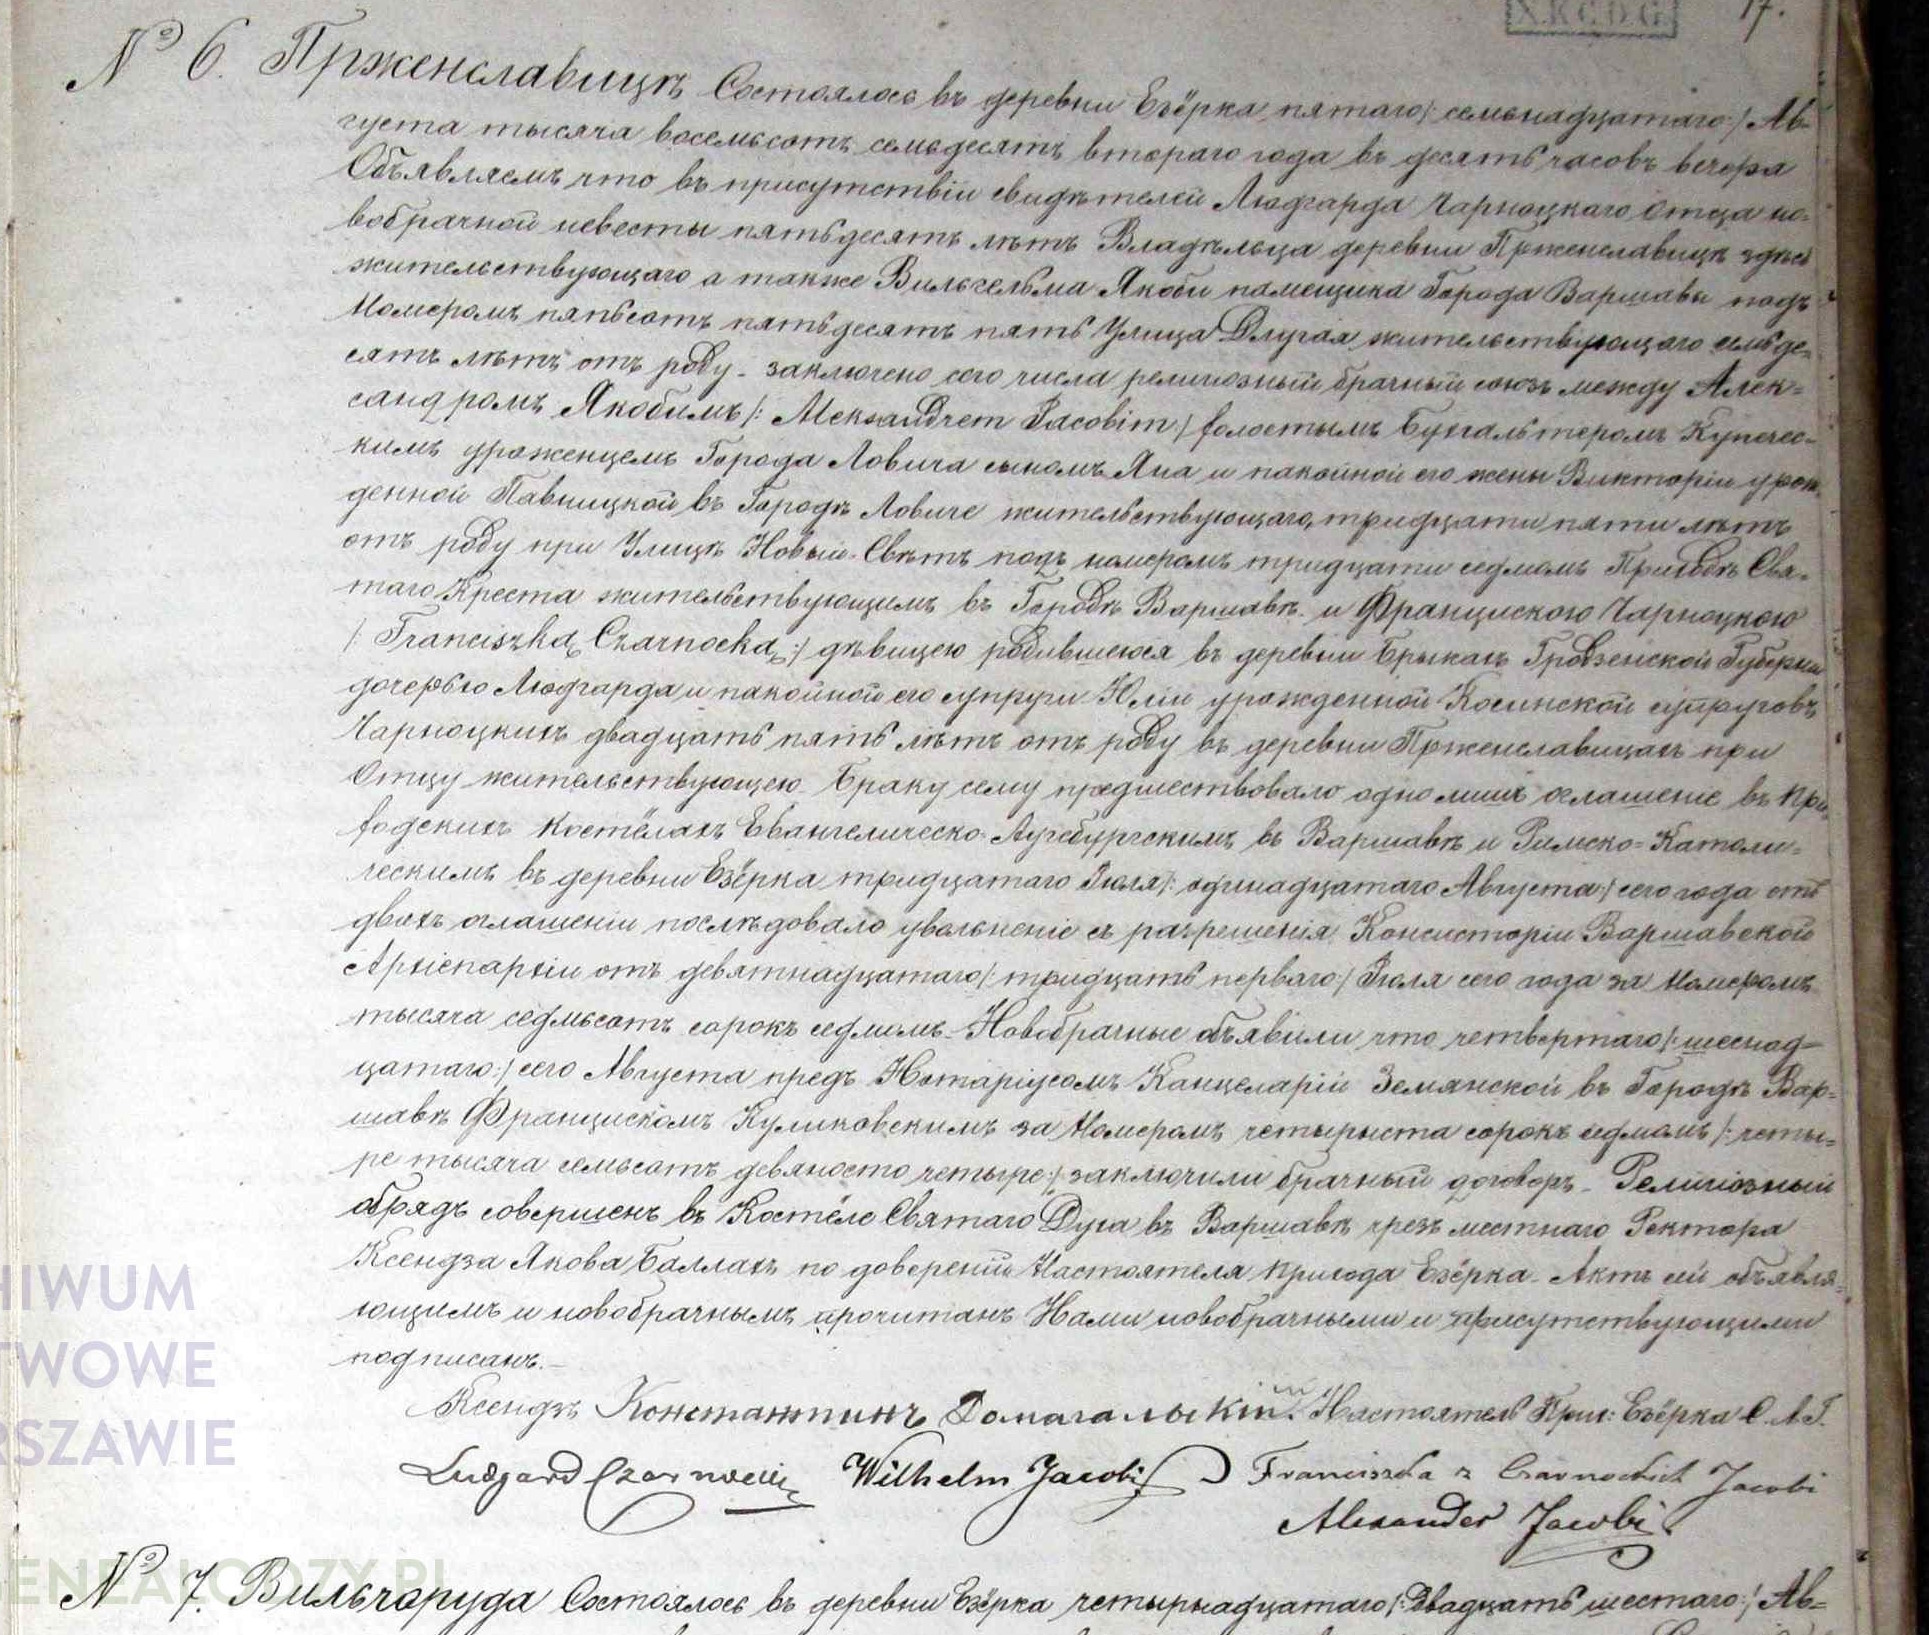 X.K.C.D.G. 17.
№ 6. Пржениславицѣ Состоялось въ деревни Езёрка пятаго /: семьнадцатаго :/ Ав-
густа тысяча восемьсотъ семьдесятъ втораго года въ десять часовъ вечера
Объявляемъ что въ присутствіи свидѣтелей Люгарда Чарноцкаго отца но-
вобрачной невесты пятьдесятъ лѣтъ Владѣльца деревни Пржениславицѣ здѣсь
жительствующаго а также Вильгельма Якоби помещика Города Варшавы подъ
Номеромъ пятьсотъ пятьдесятъ пять Улица Длугая жительствующаго семьде-
сятъ лѣтъ отъ роду - заключено сего числа религіозный брачный союзъ между Алек-
сандромъ Якобимъ /: Aleksandrem Jacobim :/ холостымъ Бухгальтеромъ Купечес-
кимъ уроженцемъ Города Ловича сыномъ Яна и покойной его жены Викторіи урож-
денной Павницкой въ Городѣ Ловиче жительствующаго, тридцати пяти лѣтъ
отъ роду при Улицѣ Новый-Свѣтъ подъ номеромъ тридцати седмомъ Приходѣ Свя-
таго Креста жительствующимъ въ Городѣ Варшавѣ - и Францискою Чарноцкою
/: Franciszką Czarnocką :/ дѣвицею родившеюся въ деревни Брыкахъ Гродзенской Губерни
дочерью Люгарда и покойной его супруги Юліи урожденной Косинской супруговъ
Чарноцкихъ двадцать пять лѣтъ отъ роду въ деревни Пржениславицахъ при
Отцу жительствующею - Браку сему предшествовало одно лишь оглашеніе въ При-
ходскихъ костёлахъ Евангелическо-Аугсбургскимъ въ Варшавѣ и Римско-Католи-
ческимъ въ деревни Езёрка тридцатаго Іюля /: одинадцатаго Августа :/ сего года отъ
двухъ оглашеніи послѣдовало увольненіе съ разрешенія Консисторіи Варшавской
Архіепархіи отъ девятнадцатаго /: тридцать перваго :/ Іюля сего года за Номеромъ
тысяча седмьсотъ сорокъ седмымъ - Новобрачные объявили что четвертаго /: шеснад-
цатаго :/ сего Августа предъ Нотаріусомъ Канцеларіи Земянской въ Городѣ Вар-
шавѣ Францискомъ Куликовскимъ за Номеромъ четырыста сорокъ седмомъ /: четы-
ре тысяча семьсотъ девяносто четыре :/ заключили брачный договоръ - Религіозный
обрядъ совершенъ въ Костёле Святаго Духа въ Варшавѣ чрезъ местнаго Ректора
Ксендза Якова Баллахъ по доверенію Настоятеля прихода Езёрка - Актъ сей объявля-
ющимъ и новобрачнымъ прочитанъ Нами новобрачными и присутствующими
подписанъ.—
Ксендзъ Константинъ Домагальскій Настоятель Прих: Езёрка С.А.Г.
Ludgard Czarnocki Wilhelm Jacobi Franciszka z Czarnockich Jacobi
Alexander Jacobi
№ 7. Вильчоруда Состоялось въ деревни Езёрка четырнадцатаго /: двадцать шестаго :/ Ав-
HIWUM
TWOWE
RSZAWIE
ENEALODZY.PL